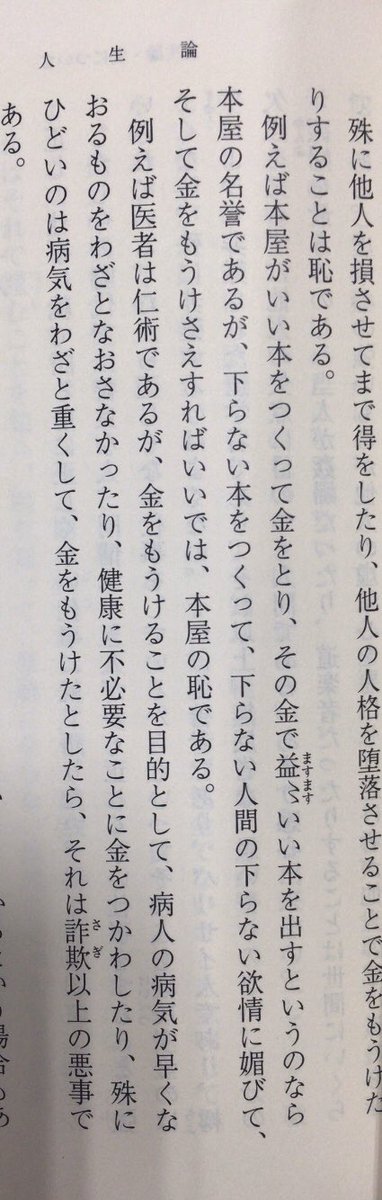 人生論
殊に他人を損させてまで得をしたり、他人の人格を堕落させることで金をもうけた
りすることは恥である。
例えば本屋がいい本をつくって金をとり、その金で益〻いい本を出すというのなら
ますます
本屋の名誉であるが、下らない本をつくって、下らない人間の下らない欲情に媚びて、
そして金をもうけさえすればいいでは、本屋の恥である。
例えば医者は仁術であるが、金をもうけることを目的として、病人の病気が早くな
おるものをわざとなおさなかったり、健康に不必要なことに金をつかわしたり、殊に
ひどいのは病気をわざと重くして、金をもうけたとしたら、それは詐欺以上の悪事で
さぎ
ある。